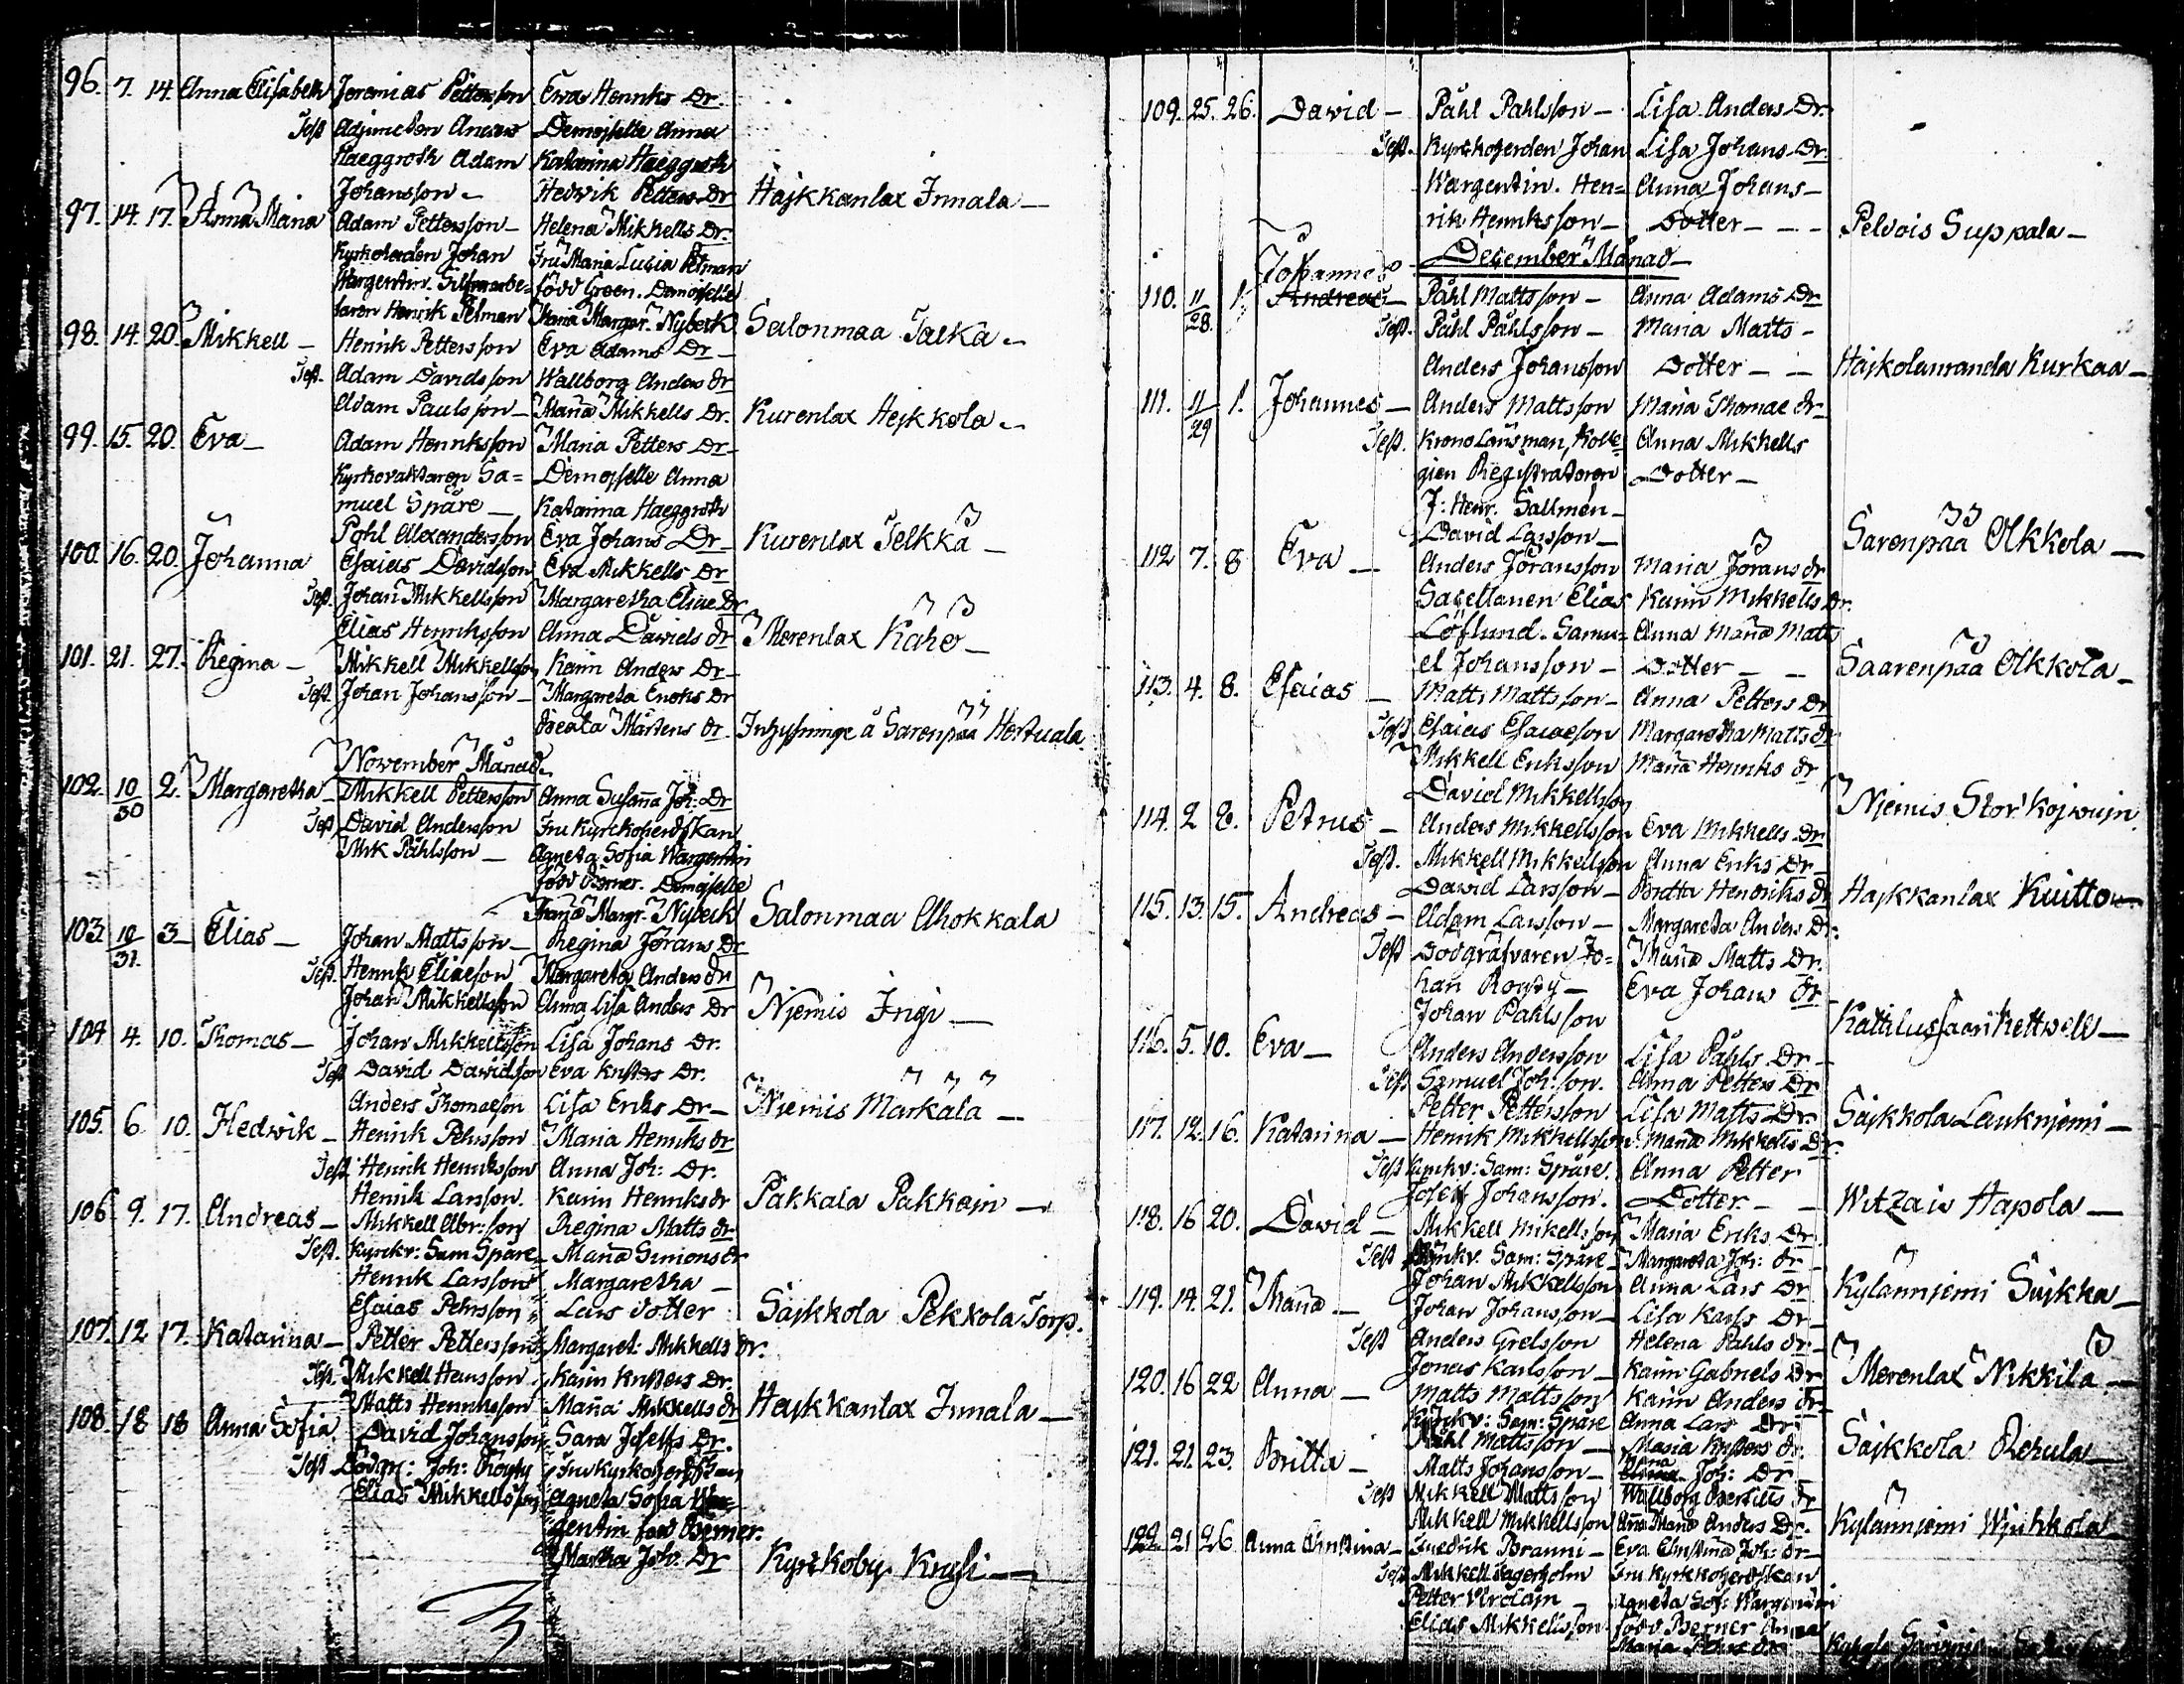 96. 7. 14. Anna Elisabeth Jeremias Pettersson Ewa Henriks Dr.
Test Adjuncten Anders Demoiselle Anna
Haeggroth Adam Katarina Haeggroth
Johansson - Hedvik Petters Dr Hajkkanlax Innala -
97. 14. 17. Anna Maria Adam Pettersson - Helena Mikkells Dr.
Kyrkoherden Johan Fru Maria Lucia Pelman
Wargentin. född Green. Demoiselle
Henrik Pelman Maria Margar. Nybeck Salonmaa Talka -
98. 14. 20. Mikkell - Henrik Pettersson Eva Adams Dr -
Test. Adam Davidsson Wallborg Anders dr
Adam Paulsson - Maria Mikkells Dr. Kurenlax Hejkkola -
99. 15. 20. Eva - Adam Henriksson Maria Petters Dr -
Kyrkovaktaren Sa= Demoiselle Anna
muel Spåre - Katarina Haeggroth
Pohl Alexandersson Eva Johans Dr - Kurenlax Telkkä -
100. 16. 20. Johanna Esaias Davidsson Eva Mikkells Dr
Test. Johan Mikkellsson Margaretha Eliae Dr
Elias Henriksson Anna Davids dr Merenlax Kähö -
101. 21. 27. Regina - Mikkell Mikkellsson Karin Anders Dr -
Test. Johan Johansson - Margareta Enoks Dr
Beata Mårtens dr Inhysninge å Sarenpää Hertuala
November Månad.
102. 10/30 2. Margaretha - Mikkell Pettersson Anna Susanna Joh: Dr
Test David Andersson Fru Kyrckoherdskan
Mik Påhlsson - Agneta Sofia Wargentin
född Berner. Demoiselle
Maria Margr. Nybeck Salonmaa Ahokkala
103. 10/31. 3 Elias - Johan Mattsson - Regina Jörans Dr
Test. Henrik Eliaeson Margareta Anders dr
Johan Mikkellsson Anna Lisa Anders Dr Njemis Ingi -
104 4. 10. Thomas - Johan Mikkellsson Lisa Johans Dr.
Test David Davidsson Eva Kristers Dr.
Anders Thomaeson Lisa Eriks Dr - Njemis Märkälä -
105. 6. 10. Hedvik - Henrik Pehrsson Maria Henriks dr
Test Henrik Henriksson Anna Joh: Dr.
Henrik Larsson. Karin Henriks dr Pakkala Pakkain -
106. 9. 17. Andreas - Mikkell Abr:son Regina Matts dr
Test. Kyrckv: Sam Spåre - Maria Simons dr
Henrik Larsson Margaretha -
Esaias Pehrsson Lars dotter Sajkkola Pekkola Torp.
107. 12 17. Katarina - Petter Pettersson Margaret: Mikkells dr.
Test. Mikkell Hansson Karin Kristers Dr.
Matts Henriksson Maria Mikkells dr Hajkkanlax Innala -
108. 18 18 Anna Sofia David Johansson Sara Josefs Dr.
Test Dödgr: Joh: Röysky Fru Kyrkoherdskan
Elias Mikkellsson Agneta Sofia War=
gentin född Berner.
Martha Joh: Dr Kyrkoby Krysi -
109. 25. 26. David - Påhl Pahlsson - Lisa Anders Dr.
Test. Kyrckoherden Johan Lisa Johans Dr.
Wargentin. Hen= Anna Johans -
rik Henriksson - Dotter - - - Pelvois Suppala -
December Månad -
Johannes
110. 11/28. 1. Andreas - Påhl Mattsson - Anna Adams Dr
Test. Påhl Påhlsson - Maria Matts -
Anders Johansson Dotter - - Hajkolanranda Kurkaa -
111. 11/29 1. Johannes - Anders Mattsson Maria Thomae dr
Test. Krono Länsman, Kolle= Anna Mikkells
gien Registratoren Dotter -
J: Henr. Sallmén -
David Larsson - Sarenpää Olkkola -
112 7. 8 Eva - Anders Jöransson Maria Jörans dr
Sacellanen Elias Karin Mikkells Dr.
Löflund. Samu= Anna Maria Matts
el Johansson - Dotter - - Saarenpää Olkkola -
113. 4. 8. Esaias - Matts Mattsson - Anna Petters Dr
Test Esaias Esaiaeson Margaretha Matts dr
Mikkell Eriksson Maria Henriks dr
David Mikkellsson Njemis Stor Kojwuin
114. 2 8. Petrus - Anders Mikkellsson Eva Mikkells Dr
Test. Mikkell Mikkellsson Anna Eriks Dr -
David Larsson - Britta Hendriks Dr Hajkkanlax Kuitto -
115. 13. 15. Andreas - Adam Larsson - Margareta Anders Dr.
Test Dödgräfvaren Jo= Maria Matts Dr.
han Röysky - Eva Johans Dr
Johan Pahlsson Kattilussaari Kettwell -
116. 5. 10. Eva - Anders Andersson Lisa Påhls Dr -
Test Samuel Joh:son. Anna Petters Dr
Petter Pettersson Lisa Matts Dr. Sajkkola Lauknjemi -
117. 12. 16. Katarina - Henrik Mikkellsson Maria Mikkells Dr.
Test Kyrckv: Sam: Spåre. Anna Petter
Josef Johansson. Dotter - - Witzais Hapola -
118. 16 20. David - Mikkell Mikellsson Maria Eriks Dr.
Test Kyrckv. Sam: Spåre - Margareta Joh: dr -
Johan Mikkellsson Anna Lars Dr Kylännjemi Sajkka -
119. 14. 21. Maria - Johan Johansson - Lisa Karls Dr -
Test Anders Grelsson Helena Påhls dr -
Jonas Karlsson - Karin Gabriels Dr Merenlax Nikkilä -
120. 16 22 Anna - Matts Mattsson Karin Anders dr -
Kyrckv: Sam: Spåre Anna Lars Dr
Påhl Mattsson - Maria Kristers dr. Sajkkola Rehula -
121. 21. 23. Britta - Matts Johansson - Maria Joh: Dr -
Test Mikkell Mattsson Wallborg Bertills dr
Mikkell Mikkellsson Anna Maria Anders Dr. Kylännjemi Wjuhkola
122. 21 26 Anna Christina - Fredrik Branni - Eva Christina Joh: dr -
Test Mikkell Lagerholm Fru Kyrkkoherdskan
Petter Virolajn - Agneta Sof: Wargentin
Elias Mikkellsson. född Berner Anna
Maria